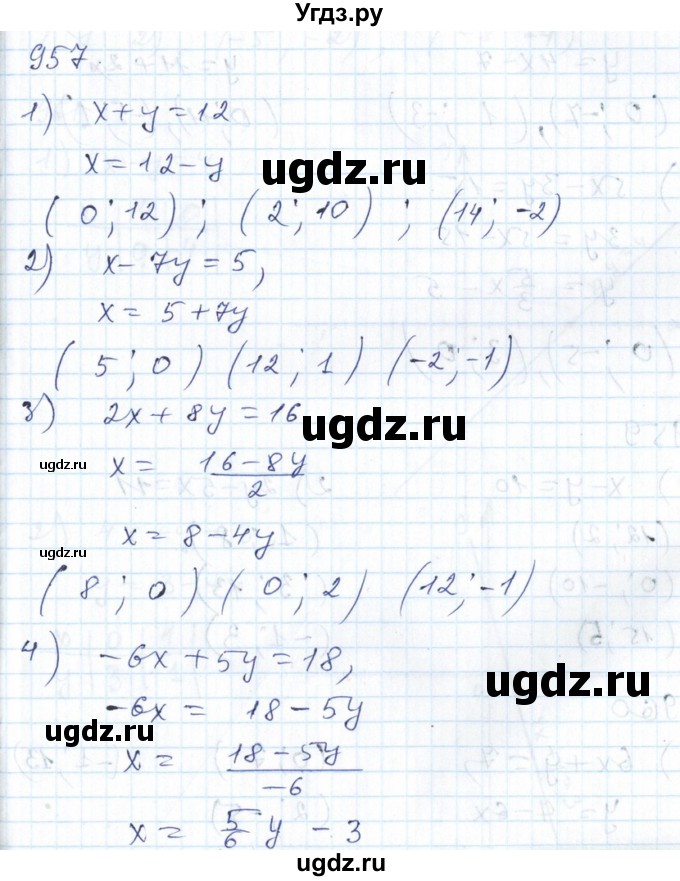 Угдз.ру
957
1) x+y=12
x=12-y
(0;12); (2;10); (14;-2)
2) x-7y=5,
x=5+7y
(5;0) (12;1) (-2;-1)
3) 2x+8y=16
x= (16-8y)/2
x=8-4y
(8;0) (0;2) (12;-1)
4) -6x+5y=18,
-6x= 18-5y
x= (18-5y)/-6
x= 5/6 y -3
ugdz.ru
ugdz.ru
ugdz.ru
ugdz.ru
ugdz.ru
ugdz.ru
ugdz.ru
ugdz.ru